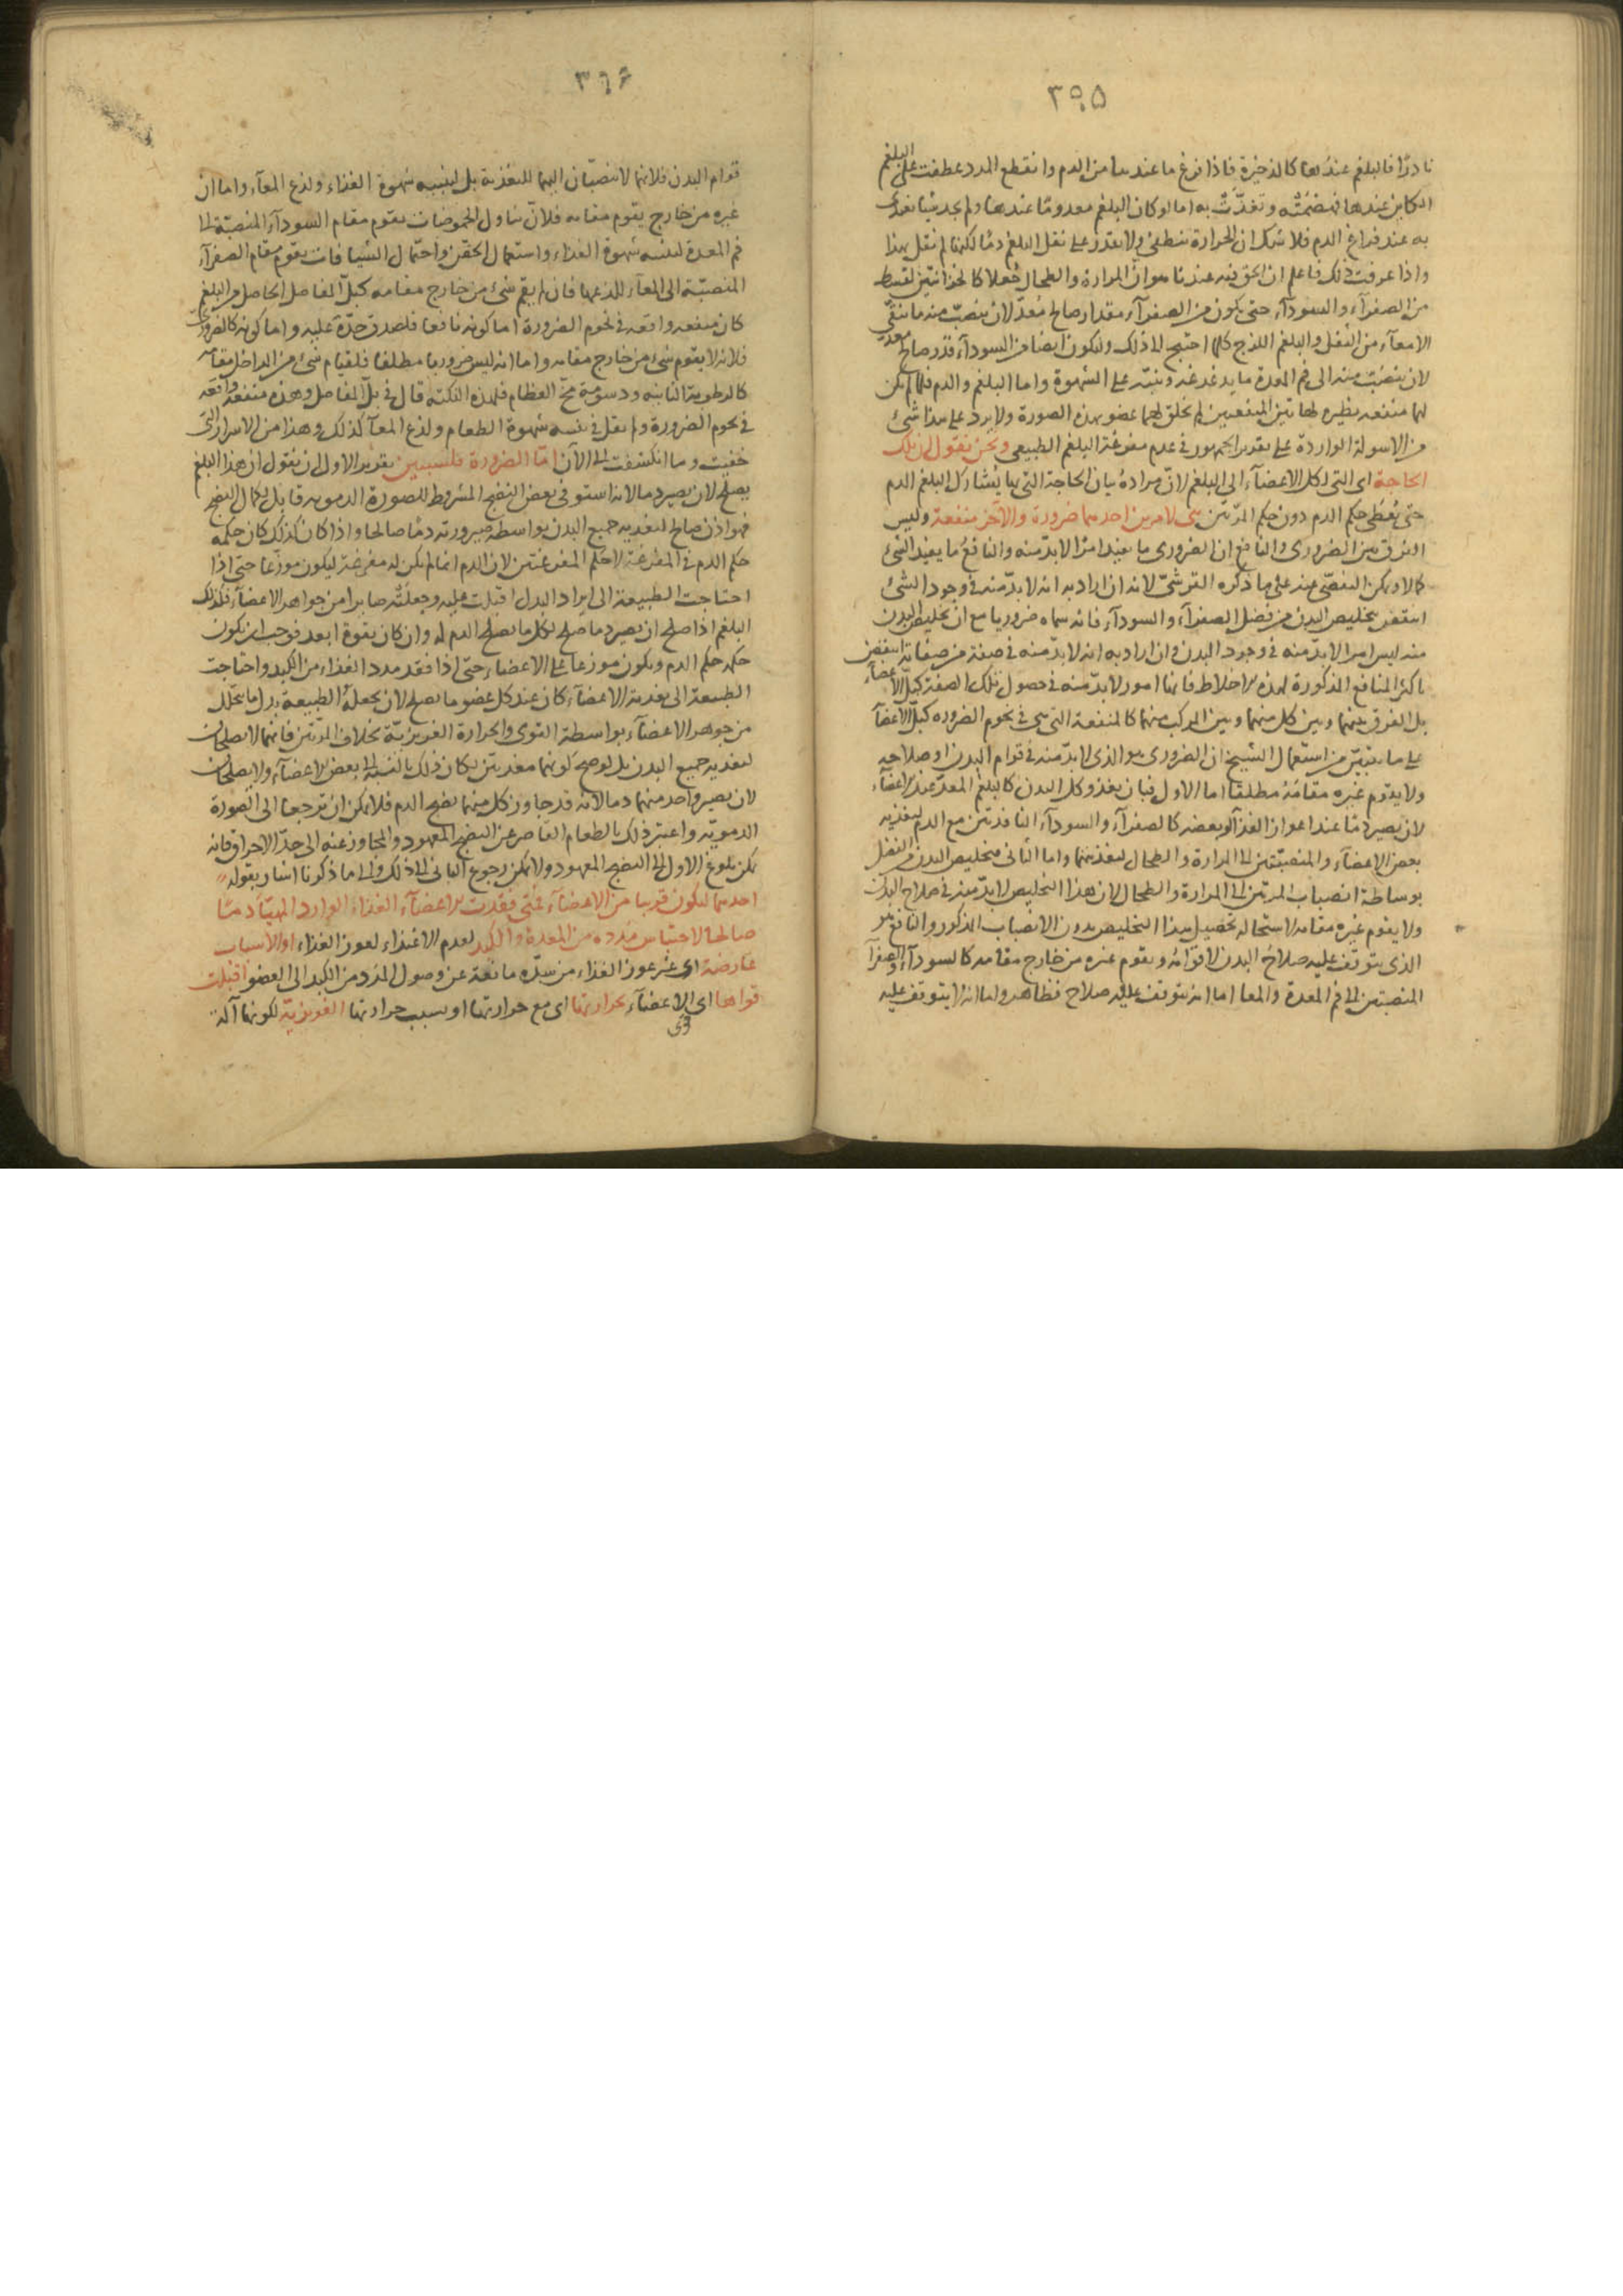 ٣٩٥
نادرًا فالبلغم عندها كالذخيرة فاذا فرغ ما عندها من الدم وانقطع المدد عطفت على البلغم
الكاين عندها فهضمته وتغذّت به اما لو كان البلغم معدومًا عندها ولم يجد شيا تغذى
به عند فراغ الدم فلا شك ان الحرارة تنطفى ولا تقدر على نقل البلغم دمًا لكنها لم تقل بهذا
واذا عرفت ذلك فاعلم ان الحق فيه عندنا هو ان المرارة والطحال جُعلا كالخزانتين لقسط
من الصفرآء والسودآء حتى يكون من الصفرآء مقدار صالح مُعدّ لان ينصبّ منه ما ينقّى
الامعآء من الثفل والبلغم اللزج كلما احتيج الى ذلك وليكون ايضا من السودآء قدر صالح معدّ
لان ينصبّ منه الى فم المعدة ما يدغدغه وينبّه على الشهوة واما البلغم والدم فلما لم يكن
لهما منفعه نظيره لهاتين المنفعتين لم يخلق لهما عضو بهذه الصورة ولا يرد على هذا شىء
من الاسولة الواردة على تقدير الجمهور فى عدم مفرغة البلغم الطبيعى ونحن نقول ان تلك
الحاجة اى التى لكل الاعضآء الى البلغم لانّ مراده بيان الحاجة التى بها يشارك البلغم الدم
حتى يُعطى حكم الدم دون حكم المرّتين هى لامرين احدهما ضرورة والآخر منفعة وليس
الفرق بين الضرورى والنافع ان الضرورى ما يفيد امرًا لا بدّ منه والنافع ما يفيد الشىء
كمالا ويمكن التفصّى عنه على ما ذكره القرشىّ لانه ان اراد به انه لا بدّ منه فى وجود الشىء
انتقض بتخليص البدن من فضل الصفرآء والسودآء فانه سماه ضروريا مع ان تخليص البدن
منه ليس امرا لا بدّ منه فى وجود البدن وان اراد به انه لا بدّ منه فى صفة من صفاته انتقض
باكثر المنافع المذكورة لهذه الاخلاط فانها امور لا بدّ منه فى حصول تلك الصفة كبلّ الاعضآء
بل الفرق بينهما وبين كل منهما وبين المركب منهما كالمنفعة التى هى فى نحوم الضروره كبلّ الاعضآ
على ما يتبيّن من استعمال الشيخ ان الضرورى هو الذى لا بدّ منه فى قوام البدن او صلاحه
ولا يقوم غيره مقامه مطلقا اما الاول فبان يغذو كل البدن كالبلغم المعدّ عند الاعضآء
لان يصير دمًا عند اعواز الغذآ او بعضه كالصفرآء والسودآء النافذتين مع الدم لتغذيه
بعض الاعضآء والمنصبّتين الى المرارة والطحال لتغذيتهما واما الثانى فتخليص البدن من الفضل
بوساطة انصباب المرتين الى المرارة والطحال لان هذا التخليص لا بدّ منه فى صلاح البدن
ولا يقوم غيره مقامه لاستحالة تحصيل هذا التخليص بدون الانصباب المذكور والنافع هو
الذى يتوقف عليه صلاح البدن لا قوامه ويقوم غيره من خارج مقامه كالسودآء والصفرآ
المنصبتين الى فم المعدة والمعا اما انه يتوقف عليه صلاح فظاهر واما انه لا يتوقف عليه
٣٩٦
قوام البدن فلانهما لا ينصبّان اليهما للتغذية بل لتنبيه شهوة الغذاء ولذع المعآء واما ان
غيره من خارج يقوم مقامه فلانّ تناول الحموضات يقوم مقام السودآء المنصبّة الى
فم المعدة لتنبيه شهوة الغذاء واستعمال الحقن واحتمال الشيافات يقوم مقام الصفرآء
المنصبّة الى المعآء للذعها فان لم يقم شىء من خارج مقامه كبلّ المفاصل الحاصل من البلغم
كان منفعه واقعه فى نحوم الضرورة اما كونه نافعا فلصدق حدّه عليه واما كونه كالضرورى
فلانه لا يقوم شىء من خارج مقامه واما انه ليس ضروريا مطلقا فلقيام شىء من الداخل مقامه
كالرطوبة الثانيه ودسومة مخّ العظام فلهذه النكته قال فى بلّ المفاصل وهذه منفعة واقعه
فى نحوم الضرورة ولم يقل فى تنبيه شهوة الطعام ولذع المعآ كذلك وهذا من الاسرار التى
خفيت وما انكشفت الى الآن امّا الضرورة فلسببين تقدير الاول ان نقول ان هذا البلغم
يصلح لان يصير دما لانه استوفى بعض النضج المشروط للصورة الدمويه قابل لكمال النضج
فهو اذن صالح لتغذيه جميع البدن بواسطة صيرورته دمًا صالحا واذا كان كذلك كان حكمه
حكم الدم فى المفرغة لا حكم المفرغتين لان الدم انما لم يكن له مفرغة ليكون موزّعا حتى اذا
احتاجت الطبيعة الى ايراد البدل اقبلت عليه وجعلته صايرا من جواهر الاعضآء فكذلك
البلغم اذا صلح ان يصير دما صلح لكل ما يصلح الدم له وان كان بقوة ابعد فوجب ان يكون
حكمه حكم الدم ويكون موزعا على الاعضاء حتى اذا فقد مدد الغذاء من الكبد واحتاجت
الطبيعة الى تغذية الاعضآء كان عند كل عضو ما يصلح لان يجعله الطبيعة بدل ما يتحلل
من جوهر الاعضآء بواسطة القوى والحرارة الغريزيّة بخلاف المرّتين فانهما لا يصلحان
لتغذيه جميع البدن بل لو صح كونهما مغذيتين لكان ذلك بالنسبة الى بعض الاعضآء ولا يصلحان
لان يصير واحد منهما دما لانه قد جاوز كل منهما نضج الدم فلا يمكن ان ترجعا الى الصورة
الدمويّه واعتبر ذلك بالطعام القاصر عن النضج المعهود والمجاوز عنه الى حدّ الاحراق فانه
يمكن بلوغ الاول الى النضج المعهود ولا يمكن رجوع الثانى الى ذلك والى ما ذكرنا اشار بقوله
احدهما ليكون قريبا من الاعضآء فمتى فقدت الاعضآء الغذاء الوارد المهيّأ دمًا
صالحا لاحتباس مدده من المعدة والكبد لعدم الاغتذاء لعوز الغذاء او لاسباب
عارضة اى غير عوز الغذاء من سدّه مانعة عن وصول المدد من الكبد الى العضو اقبلت
قواها اى قوى الاعضآء بحرارتها اى مع حرارتها او بسبب حرارتها الغريزيّة لكونها آلة